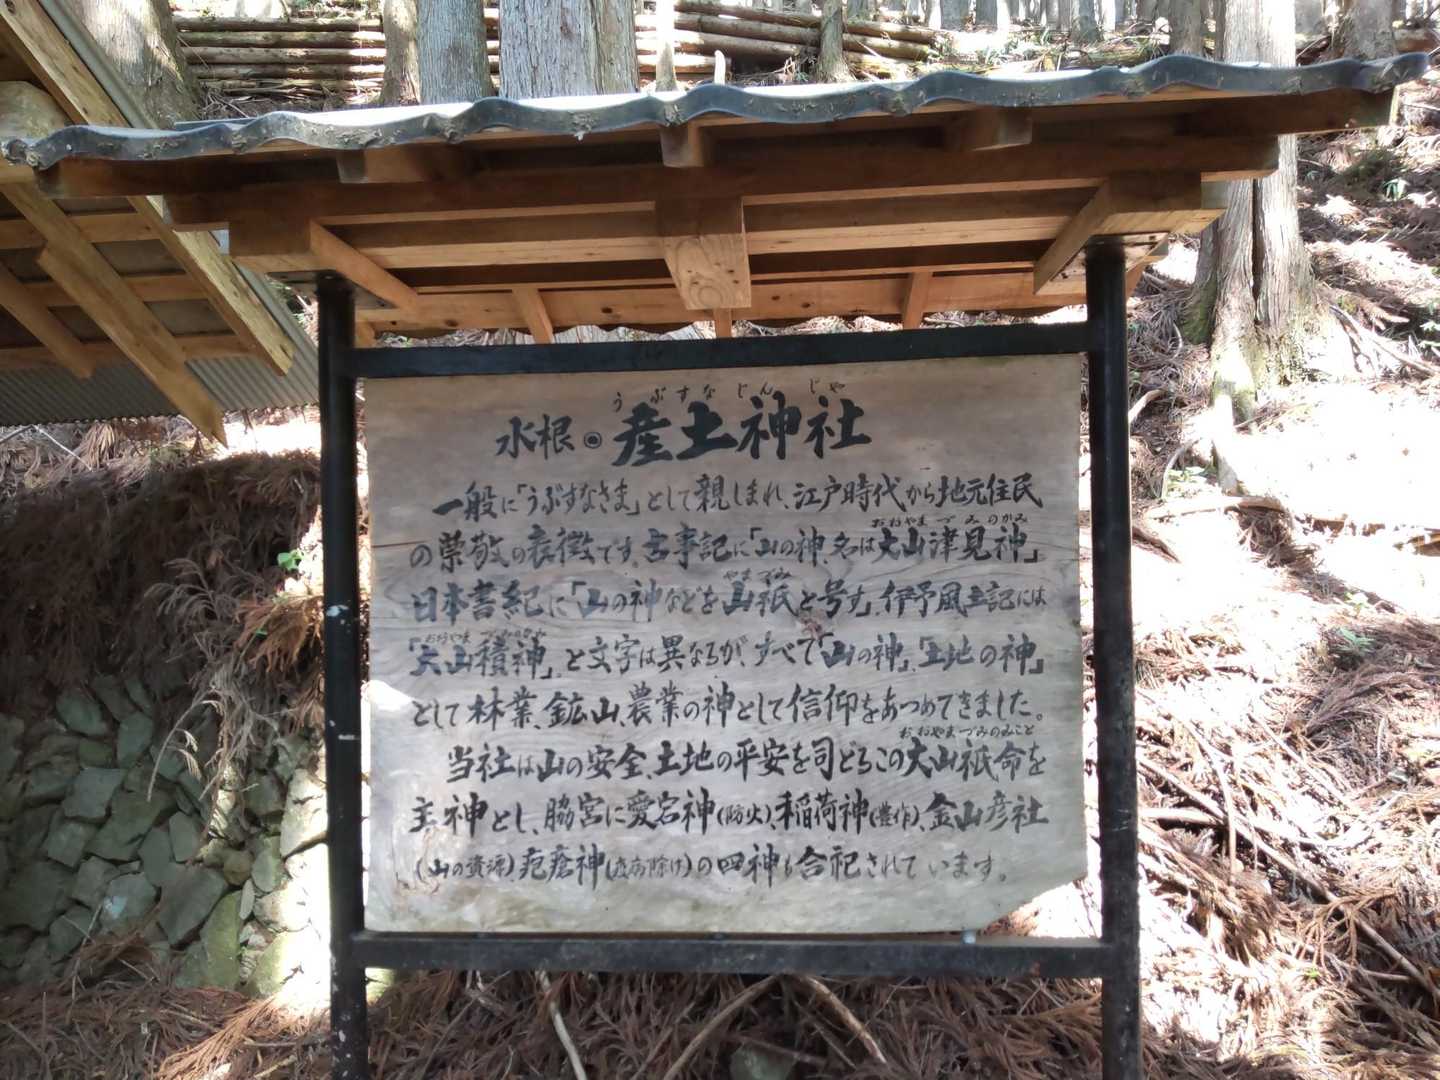 うぶすなじんじゃ
水根◉産土神社
一般に「うぶすなさま」として親しまれ、江戸時代から地元住民
おおやまづみのかみ
の崇敬の表徴です。古事記に「山の神、名は大山津見神」
やまづみ
日本書紀に「山の神などを山祇と号す」伊予風土記には
おおやまづみのかみ
「大山積神」と文字は異なるが、すべて「山の神」、「土地の神」
として林業、鉱山、農業の神として信仰をあつめてきました。
おおやまづみのみこと
当社は山の安全、土地の平安を司どるこの大山祇命を
主神とし、脇宮に愛宕神(防火)、稲荷神(豊作)、金山彦社
(山の資源)、疱瘡神(疫病除け)の四神も合祀されています。